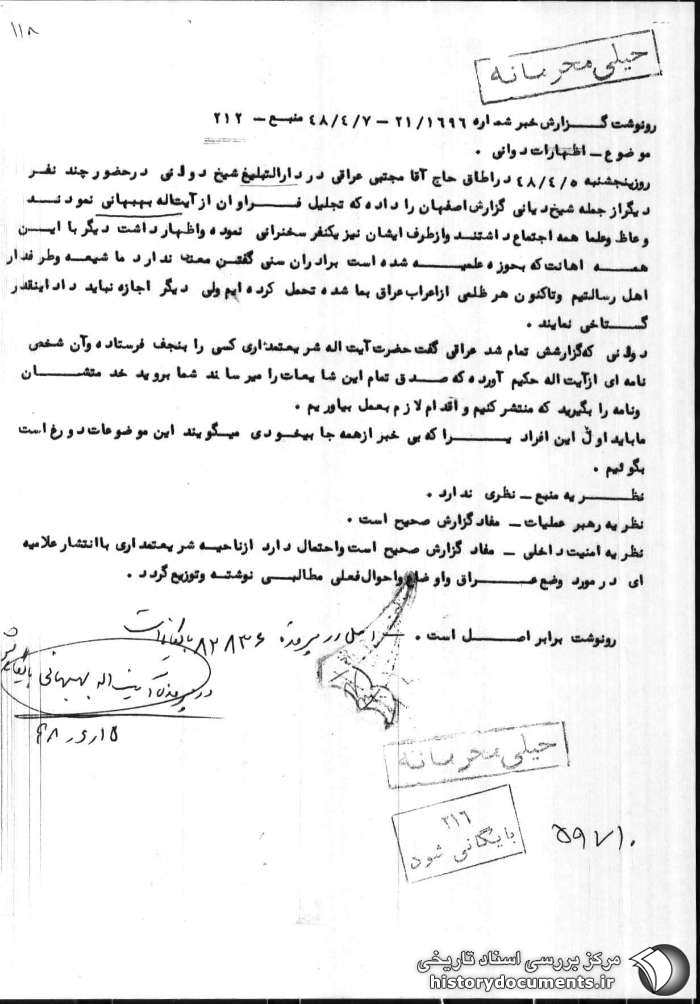 ۱۱۸
خیلی محرمانه
رونوشت گزارش خبر شماره ۲۱/۱۶۹۶ - ۴۸/۴/۷ منبع - ۲۱۲
موضوع - اظهارات دوانی .
روزپنجشنبه ۴۸/۴/۵ دراطاق حاج آقا مجتبی عراقی در دارالتبلیغ شیخ دوانی درحضور چند نفر
دیگراز جمله شیخ دیانی گزارش اصفهان را داده که تجلیل فراوان ازآیت‌اله بهبهانی نمودند
وعاظ وعلما همه اجتماع داشتند وازطرف ایشان نیز یکنفر سخنرانی نموده واظهارداشت دیگر با این
همه اهانت که بحوزه علمیه شده است برادران سنی گفتن معنی ندارد ما شیعه وطرفدار
اهل رسالتیم وتاکنون هر ظلمی ازاعراب عراق بما شده تحمل کرده ایم ولی دیگر اجازه نباید داد اینقدر
گستاخی نمایند .
دوانی که گزارشش تمام شد عراقی گفت حضرت آیت اله شریعتمداری کسی را بنجف فرستاده وآن شخص
نامه ای ازآیت اله حکیم آورده که صدق تمام این شایعات را میرساند شما بروید خدمتشان
ونامه را بگیرید که منتشر کنیم و اقدام لازم بعمل بیاوریم .
ماباید اول این افراد یرا که بی خبر ازهمه جا بیخودی میگویند این موضوعات دورغ است
بگوئیم .
نظریه منبع - نظری ندارد .
نظریه رهبر عملیات - مفاد گزارش صحیح است .
نظریه امنیت داخلی - مفاد گزارش صحیح است واحتمال دارد ازناحیه شریعتمداری باانتشار علامیه
ای درمورد وضع عراق واوضاع واحوال فعلی مطالبی نوشته وتوزیع گردد .
رونوشت برابر اصل است . اصل در پرونده ۸۲۸۳۶ بایگانی است
در پرونده آیت اله بهبهانی بایگانی شود
خیلی محرمانه
۳۱۶
بایگانی شود
۵۹۷۱۰
مرکز بررسی اسناد تاریخی
historydocuments.ir